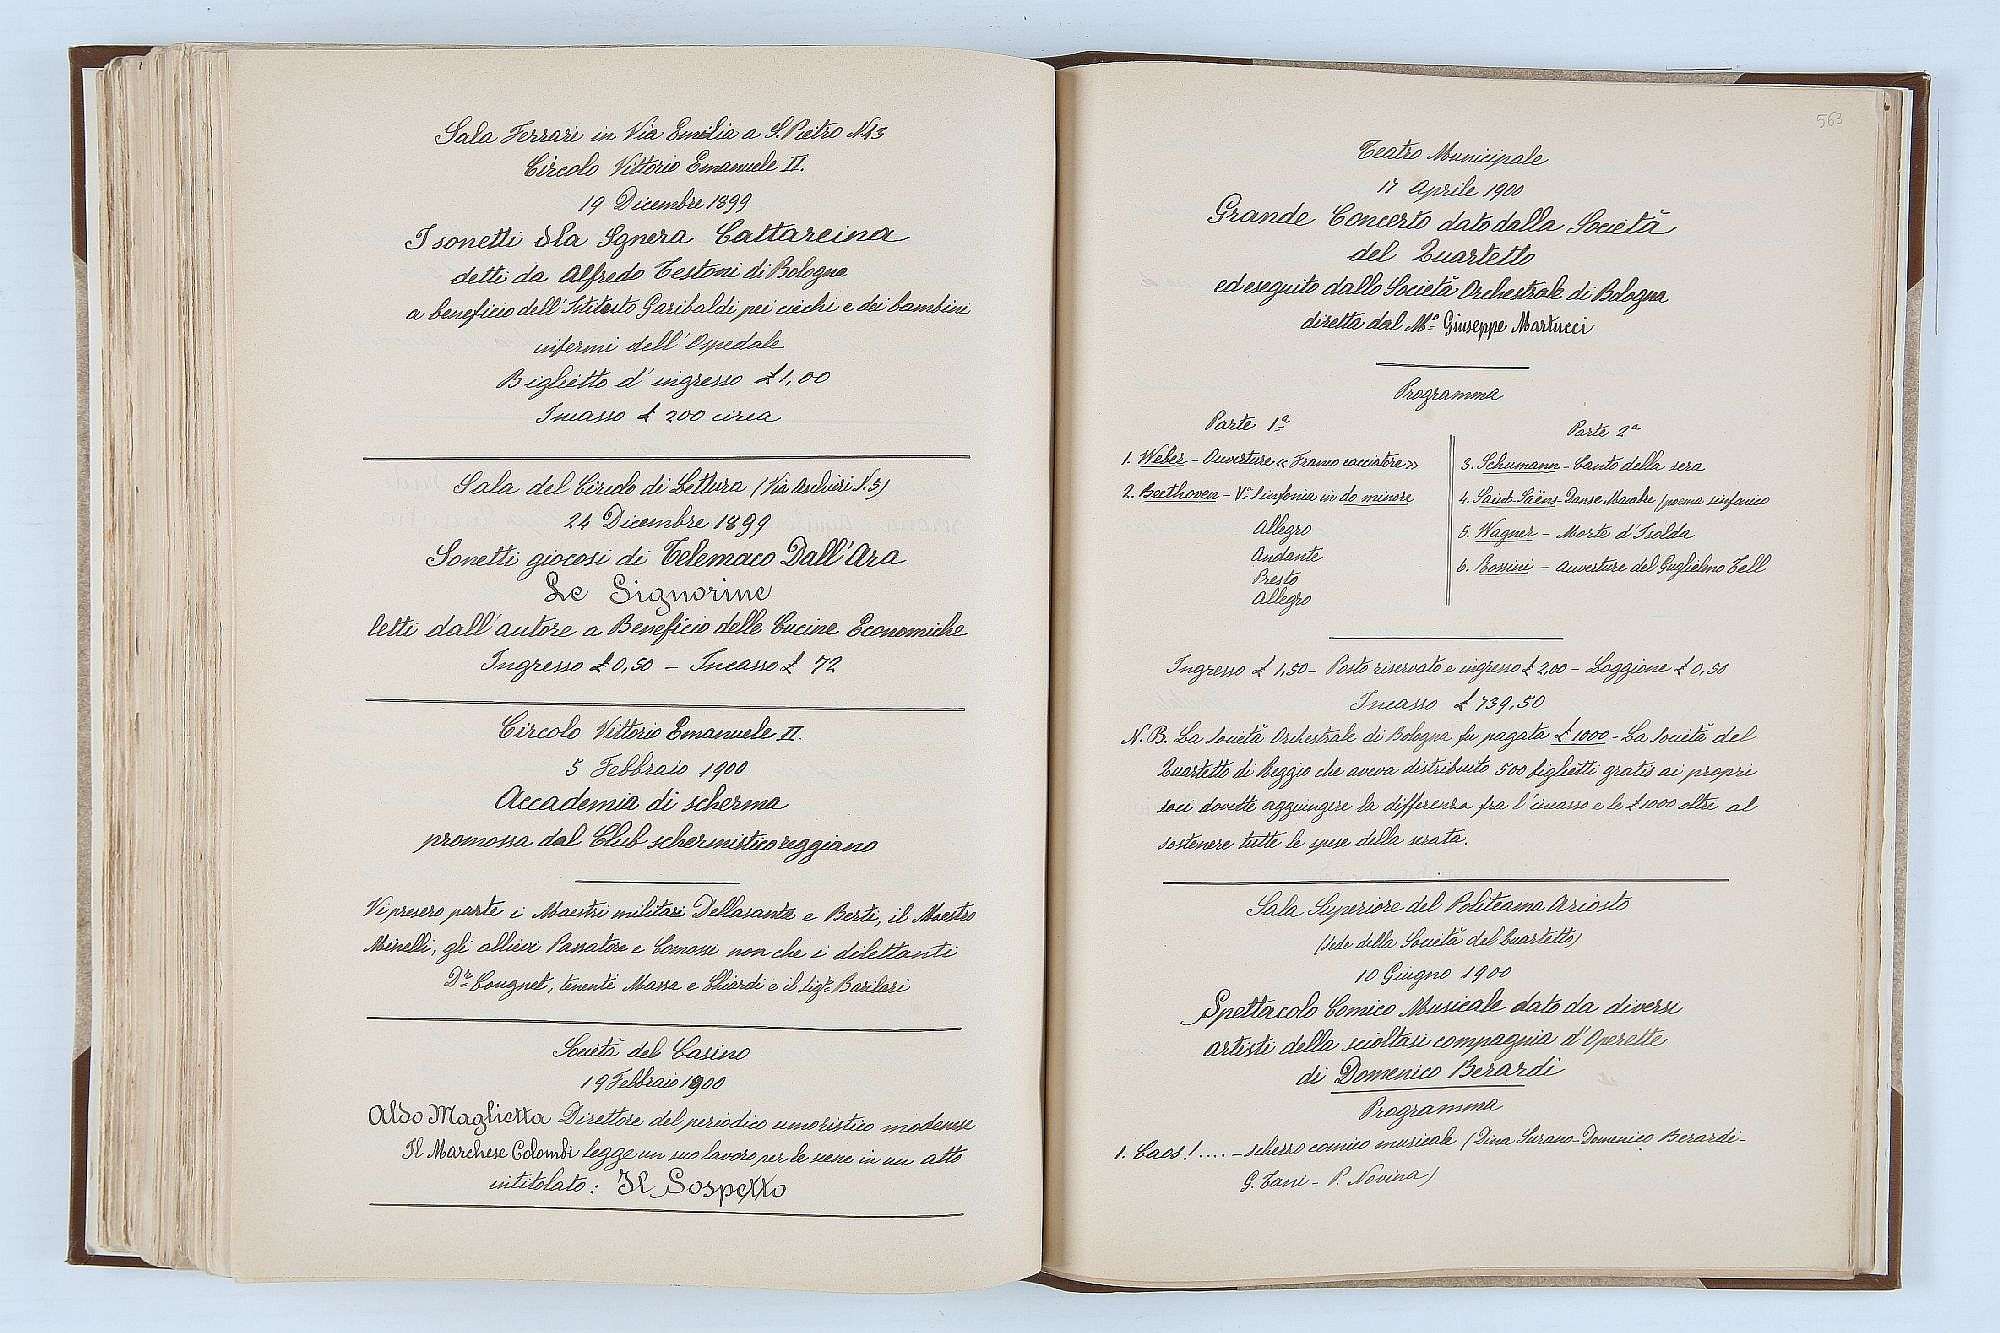 Sala Ferrari in Via Emilia a S. Pietro N.13
Circolo Vittorio Emanuele II.
19 Dicembre 1899
I sonetti dla Sgnera Cattareina
detti da Alfredo Testoni di Bologna
a beneficio dell'Istituto Garibaldi pei ciechi e dei bambini
infermi dell'Ospedale
Biglietto d'ingresso £ 1,00
Incasso £ 200 circa
Sala del Circolo di Lettura (Via Archivi N. 5)
24 Dicembre 1899
Sonetti giocosi di Telemaco Dall'Ara
Le Signorine
letti dall'autore a Beneficio delle Cucine Economiche
Ingresso £ 0,50 - Incasso £ 72
Circolo Vittorio Emanuele II.
5 Febbraio 1900
Accademia di scherma
promossa dal Club schermistico reggiano
Vi presero parte i Maestri militari Dellasante e Berti, il Maestro
Minelli, gli allievi Passatore e non che i dilettanti
Dr. Cougnet, tenenti Massa e Chiardi e il sigr. Barilari
Società del Casino
19 Febbraio 1900
Aldo Maglietta Direttore del periodico umoristico modenese
Il Marchese Colombi legge un suo lavoro per le scene in un atto
intitolato: Il Sospetto
563
Teatro Municipale
17 Aprile 1900
Grande Concerto dato dalla Società
del Quartetto
ed eseguito dallo Società Orchestrale di Bologna
diretta dal Mo. Giuseppe Martucci
Programma
Parte 1a
1. Weber - Ouverture « Franco cacciatore »
2. Beethoven - Va Sinfonia in do minore
Allegro
Andante
Presto
Allegro
Parte 2a
3. Schumann - Canto della sera
4. Saint-Saëns - Danse Macabre (poema sinfonico
5. Wagner - Morte d'Isolda
6. Rossini - Ouverture del Guglielmo Tell
Ingresso £ 1,50 - Posto riservato e ingresso £ 2,00 - Loggione £ 0,50
Incasso £ 739,50
N.B. La società Orchestrale di Bologna fu pagata £ 1000 - La società del
Quartetto di Reggio che aveva distribuito 500 biglietti gratis ai propri
soci dovette aggiungere la differenza fra l'incasso e le £ 1000 oltre al
sostenere tutte le spese della serata.
Sala Superiore del Politeama Ariosto
(Sede della Società del Quartetto)
10 Giugno 1900
Spettacolo Comico Musicale dato da diversi
artisti della scioltasi compagnia d'Operette
di Domenico Berardi
Programma
1. Caos! .... - scherzo comico musicale (Dina Surano - Domenico Berardi -
G. Tani - P. Novina)